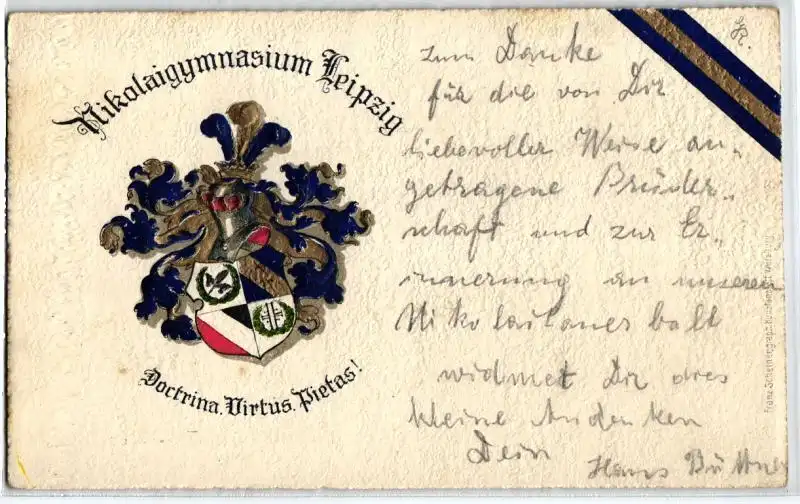 Nikolaigymnasium Leipzig
Doctrina. Virtus. Pietas!
zum Danke
für die von Dir
liebevoller Weise an-
getragene Brüder-
schaft und zur Er-
innerung an unseren
Nikolaitanerball
widmet Dir dies
kleine Andenken
Dein
Hans Büttner